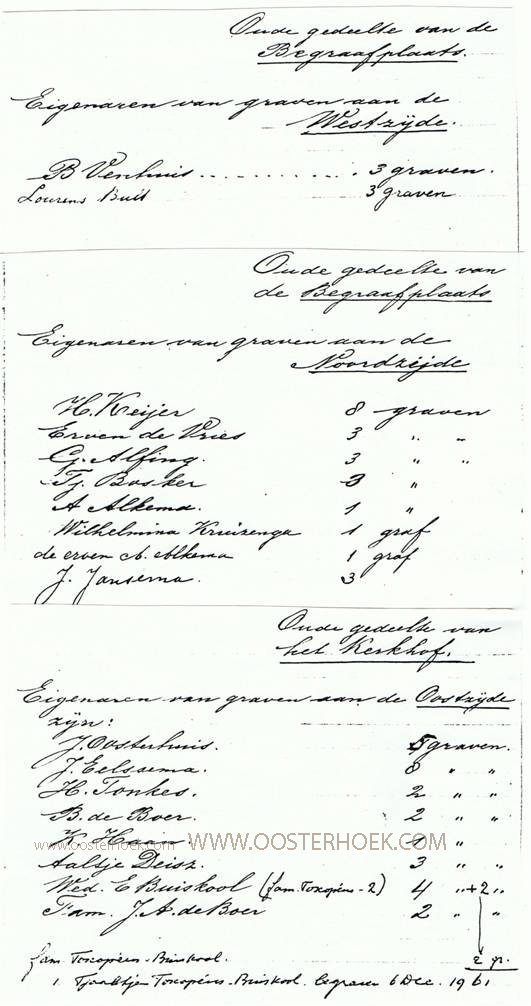 Oude gedeelte van de
Begraafplaats.
Eigenaren van graven aan de
Westzijde.
B Venhuis . . . . . . . . . . . . 3 graven.
Lourens Buit 3 graven
Oude gedeelte van
de Begraafplaats
Eigenaren van graven aan de
Noordzijde
H. Keijer 8 graven
Erven de Vries 3 " "
G. Alfing. 3 " "
Tj. Bosker 3 "
A Alkema. 1 "
Wilhelmina Kruizenga 1 graf
de erven A. Alkema 1 graf
J. Jansema. 3
Oude gedeelte van
het Kerkhof.
Eigenaren van graven aan de Oostzijde
zijn:
J. Oosterhuis. 5 graven.
J. Eelssema. 8 " "
H. Tonkes. 2 " "
B. de Boer. 2 " "
K Haan 1 "
www.oosterhoek.com WWW.OOSTERHOEK.COM
Aaltje Deisz. 3 " "
Wed. E Buiskool (fam. Toxopéus - 2) 4 " +2 "
Fam. J. A. de Boer 2 " "
fam. Toxopéus - Buiskool. 2 gr.
1. Tjaaktje Toxopéus - Buiskool. begraven 6 Dec. 1961